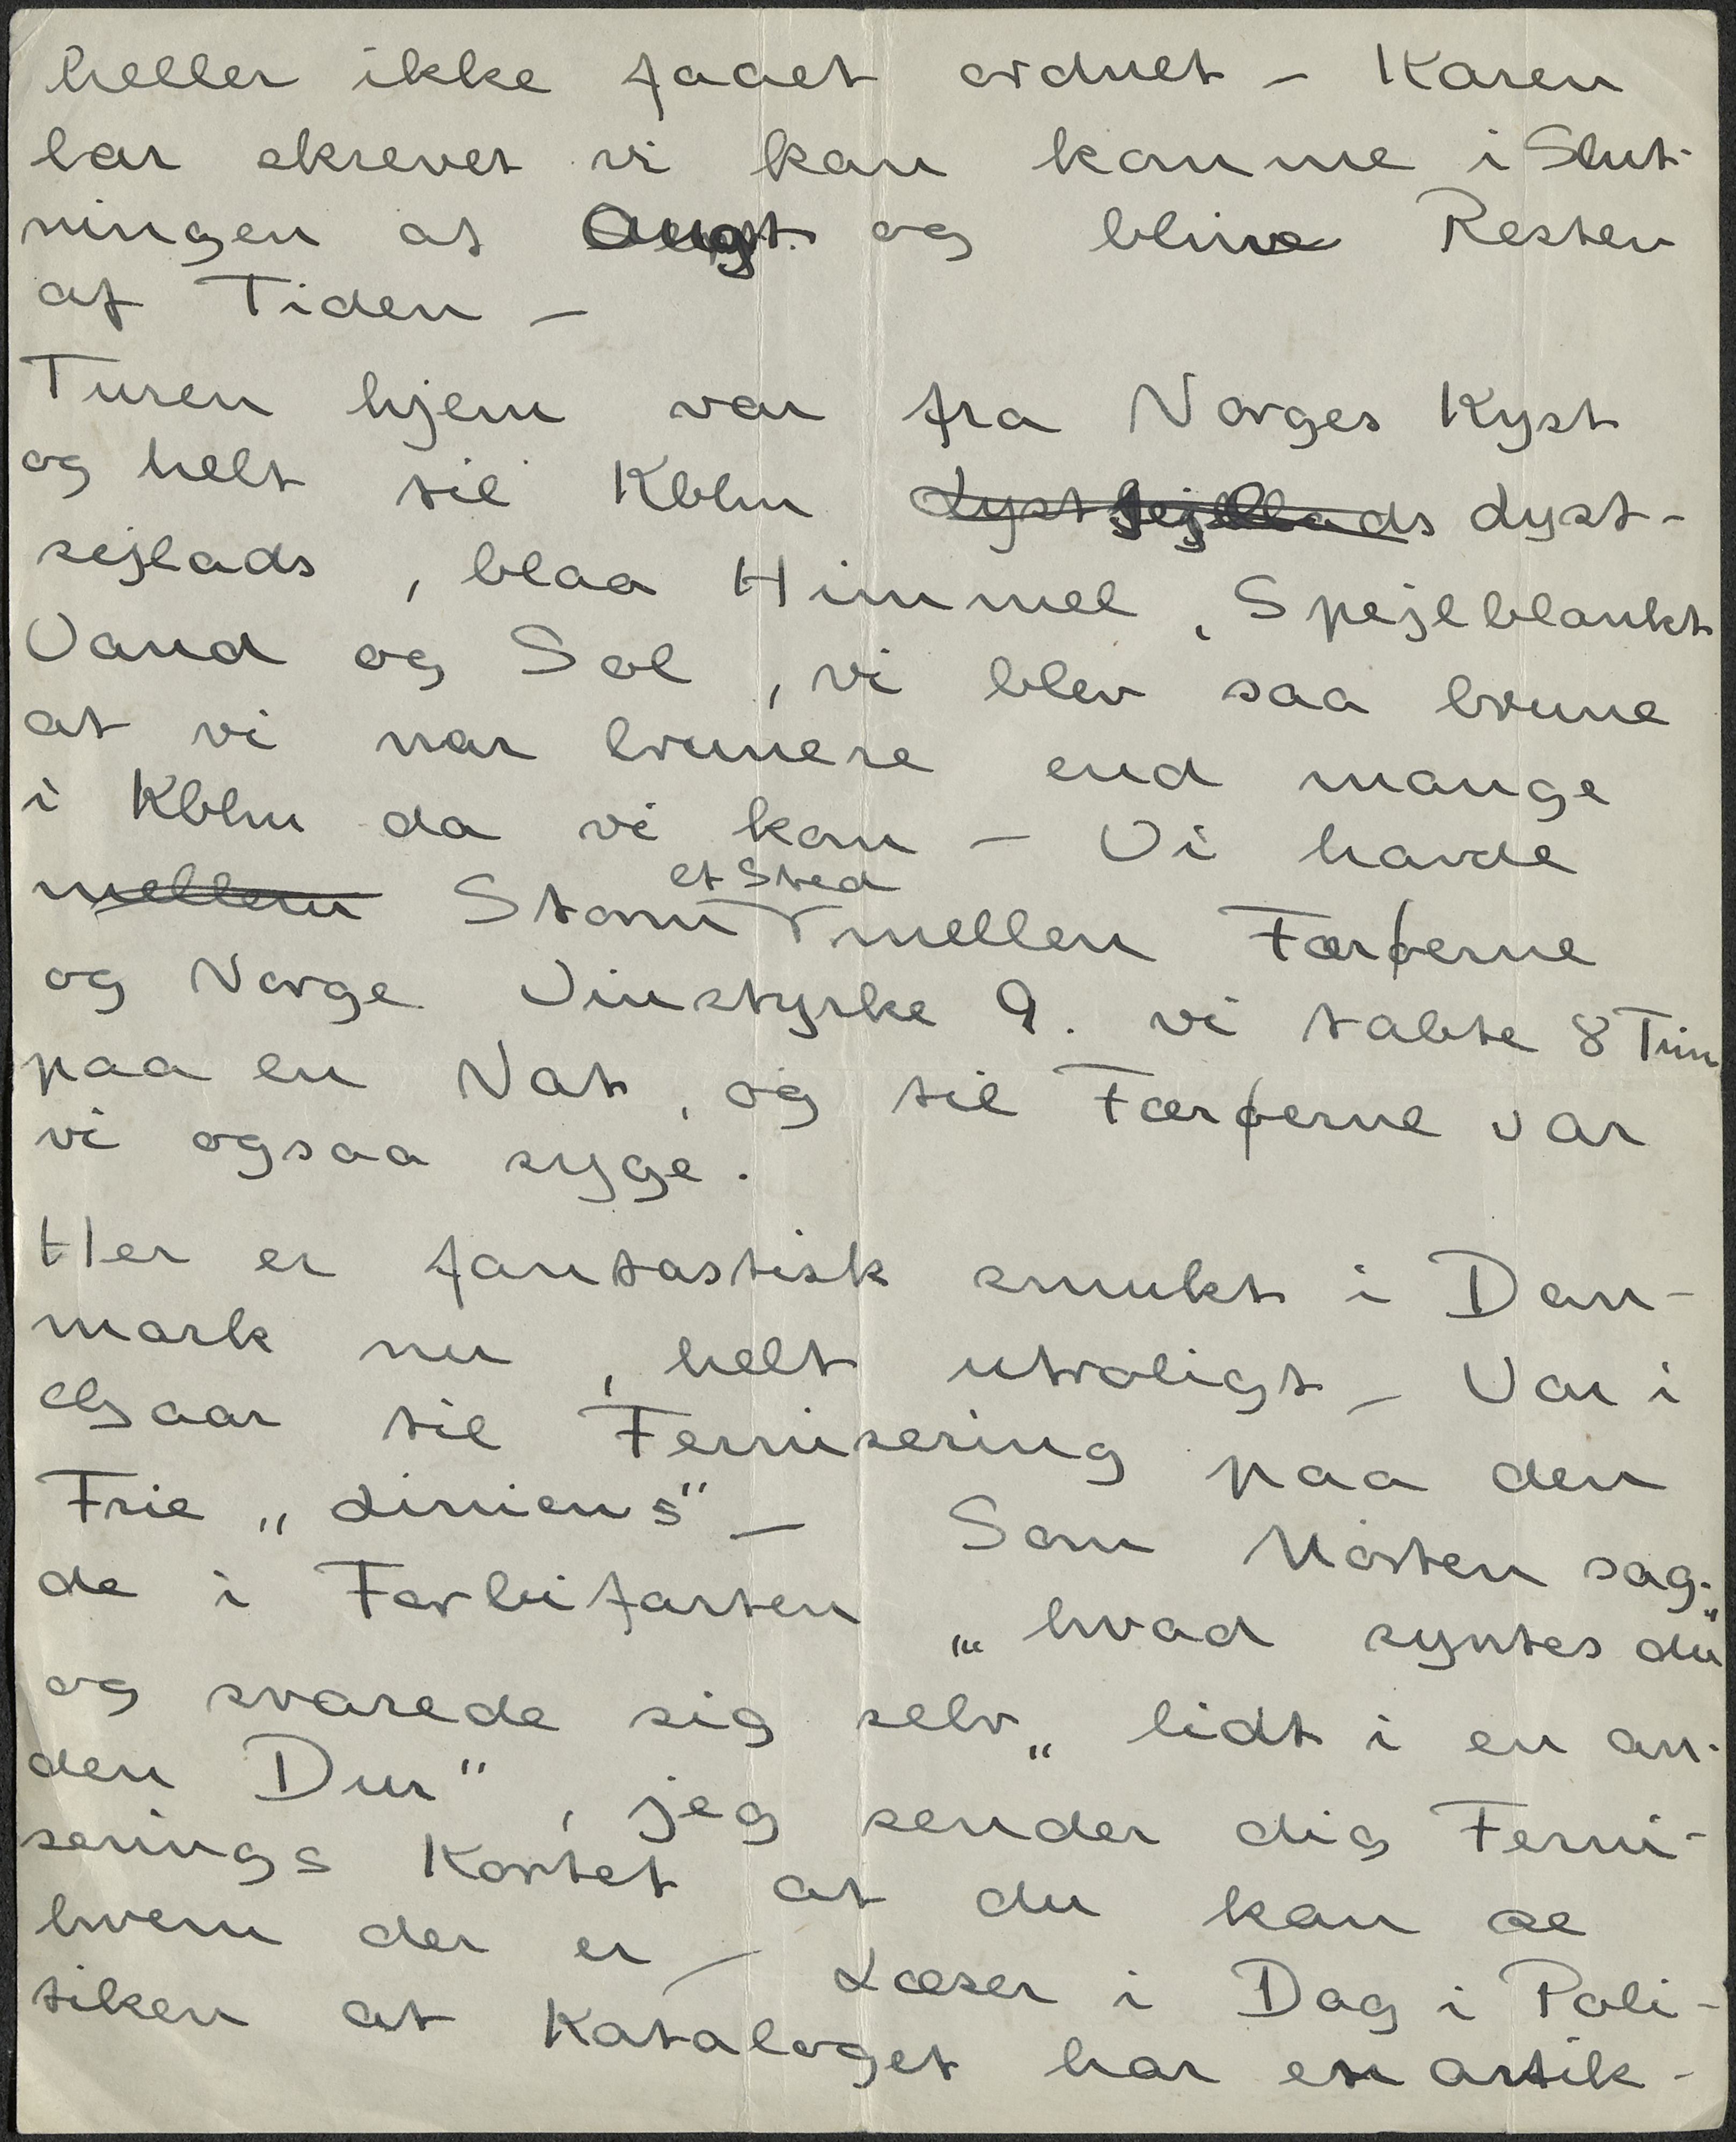 heller ikke faaet ordnet – Karen
har skrevet vi kan komme i Slut-
ningen af Augst. og blive Resten
af Tiden –
Turen hjem var fra Norges Kyst
og helt til Kbhn Lystsejllads Lyst-
sejlads, blaa Himmel, Spejlblankt
Vand og Sol, vi blev saa brune
at vi var brunere end mange
i Kbhn da vi kom – Vi havde
mellem Storm et Sted mellem Færøerne
og Norge Vinstyrke 9. vi tabte 8 Tim
paa en Nat, og til Færøerne var
vi ogsaa syge.
Her er fantastisk smukt i Dan-
mark nu, helt utroligt – Var i
Gaar til Fernisering paa den
Frie „Liniens" – Som Morten sag-
de i Forbifarten „hvad syntes du"
og svarede sig selv „lidt i en an-
den Dur", jeg sender dig Ferni-
serings Kortet at du kan se
hvem der er – Læser i Dag i Poli-
tiken at Kataloget har en artik-